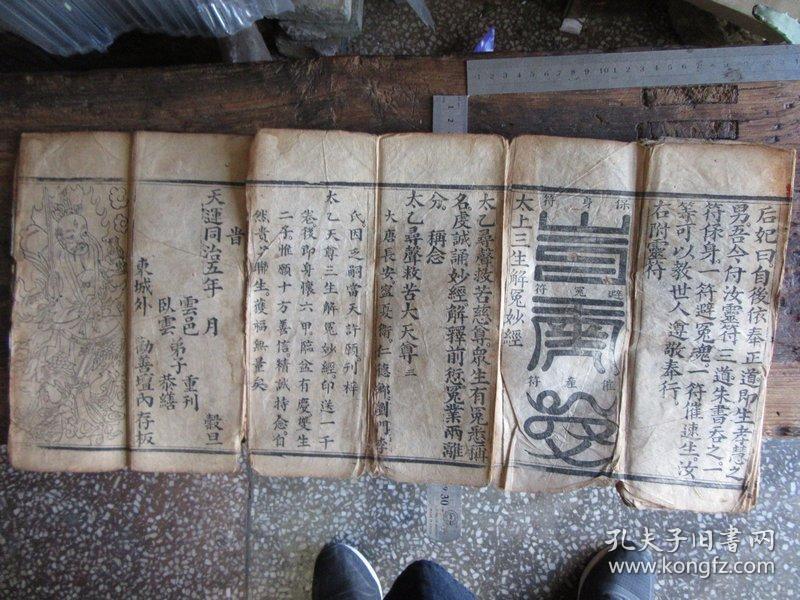 后妃曰自後依奉正道即生孝慧之
男吾今付汝靈符三道朱書吞之一
符保身一符避冤魂一符催速生汝
等可以救世人遵敬奉行
右附靈符
保身符
避冤符
催產符
太上三生解冤妙經
太乙尋聲救苦慈尊眾生有冤悉稱
名虔誠誦妙經解釋前愆冤業兩離
分。稱念
太乙尋聲救苦大天尊三
大唐長安宜 仁德鄉劉門李
氏因乏嗣當天許願刊梓
太乙天尊三生解冤妙經印送一千
卷後即身懷六甲臨盆有慶雙生
二子惟願十方善信精誠持念自
然貴子聯生獲福無量矣
旹
天運同治五年 月 穀旦
雲邑
臥雲弟子重刊
恭繕
東城外 勸善壇內存板
孔夫子旧书网
www.kongfz.com